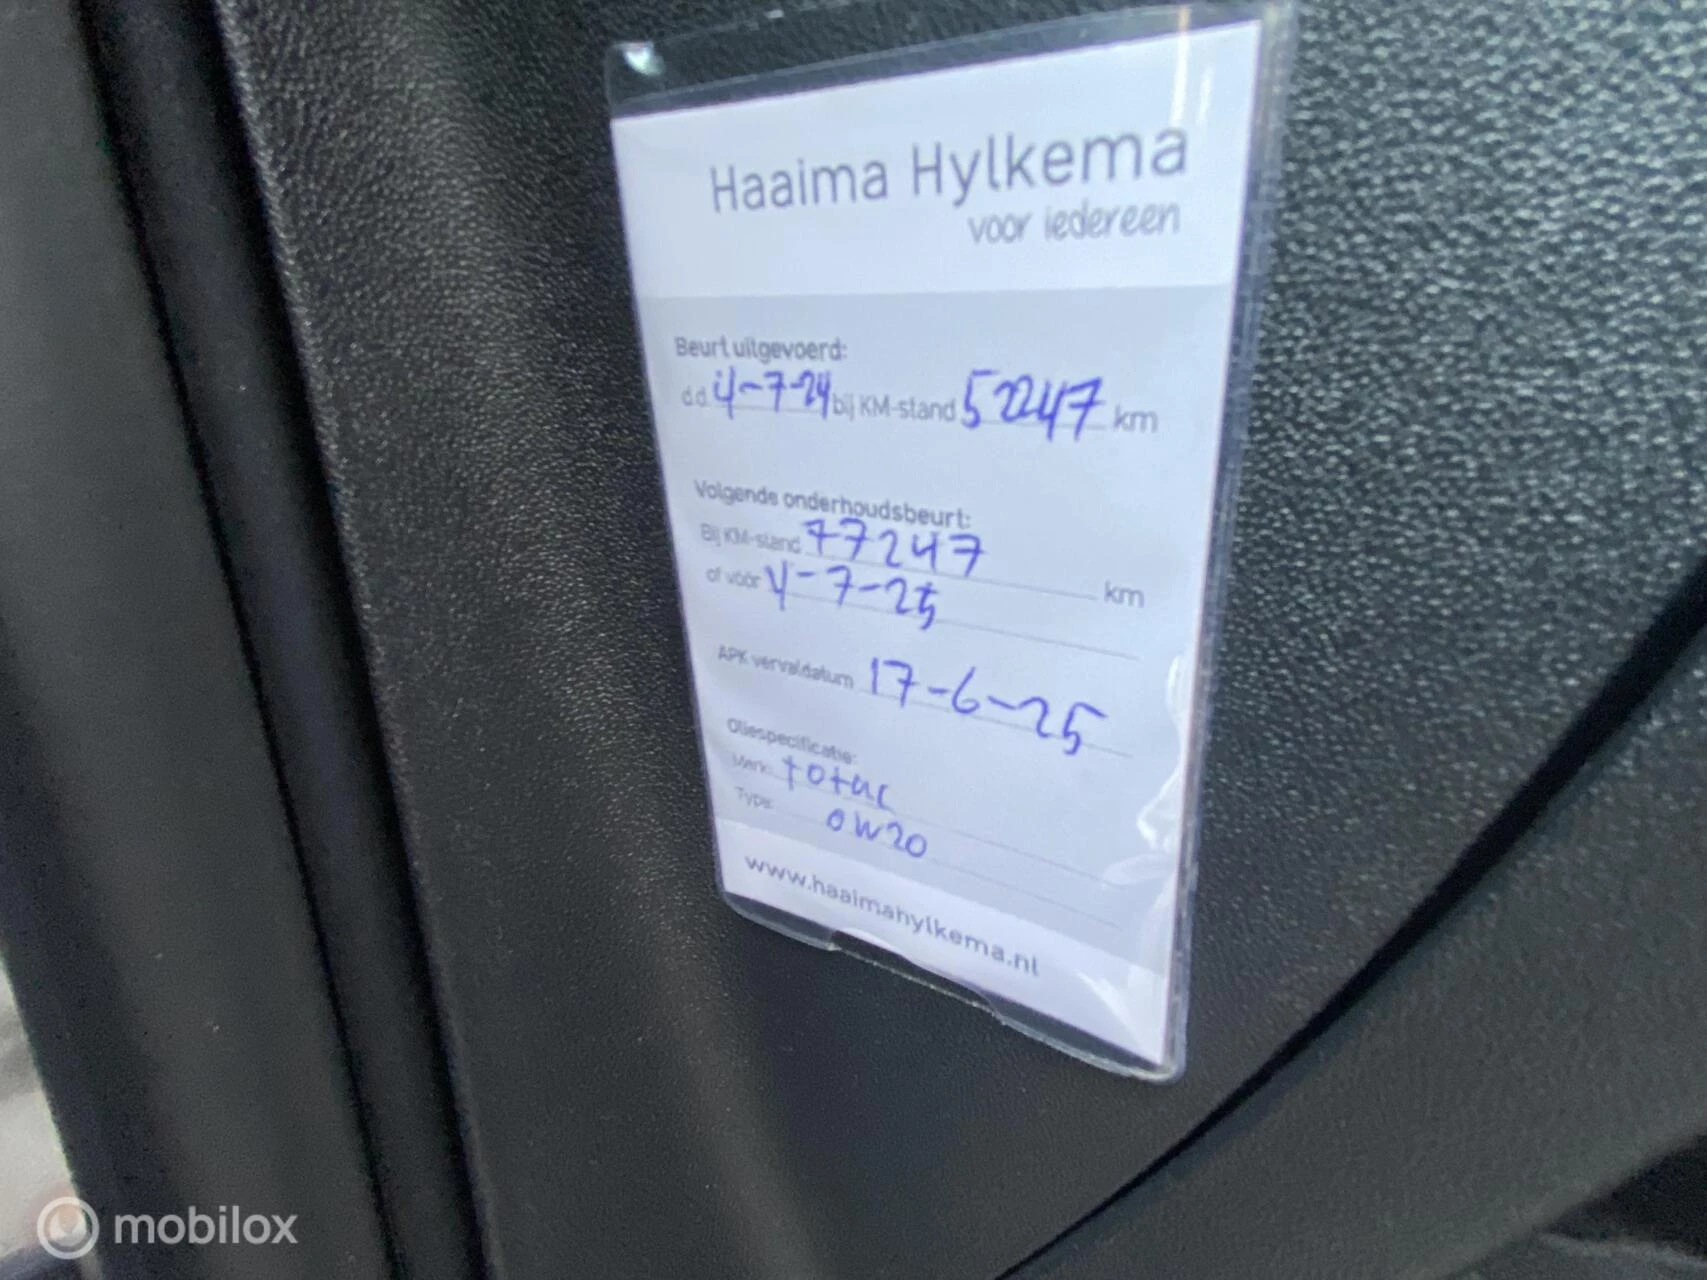 Haaima Hylkema
voor iedereen
Beurt uitgevoerd:
d.d. 4-7-24 bij KM-stand 52247 km
Volgende onderhoudsbeurt:
Bij KM-stand 77247 km
of vóór 4-7-25
APK vervaldatum 17-6-25
Oliespecificatie:
Merk: total
Type: 0W20
www.haaimahylkema.nl
mobilox